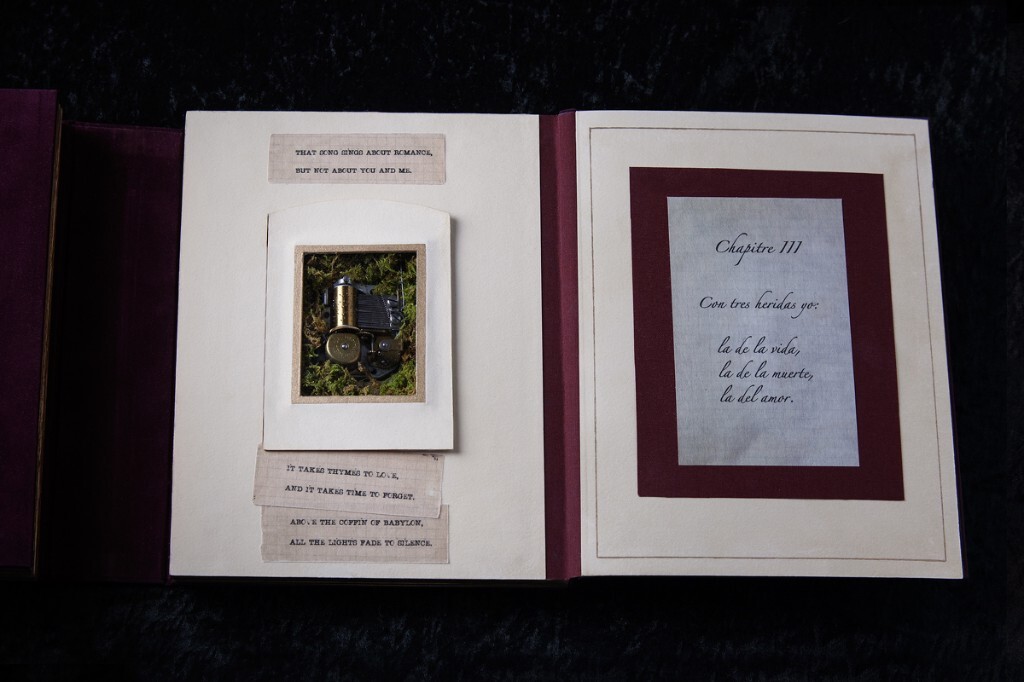 THAT SONG SINGS ABOUT ROMANCE,
BUT NOT ABOUT YOU AND ME.
IT TAKES THYMES TO LOVE,
AND IT TAKES TIME TO FORGET.
ABOVE THE COFFIN OF BABYLON,
ALL THE LIGHTS FADE TO SILENCE.
Chapitre III
Con tres heridas yo:
la de la vida,
la de la muerte,
la del amor.